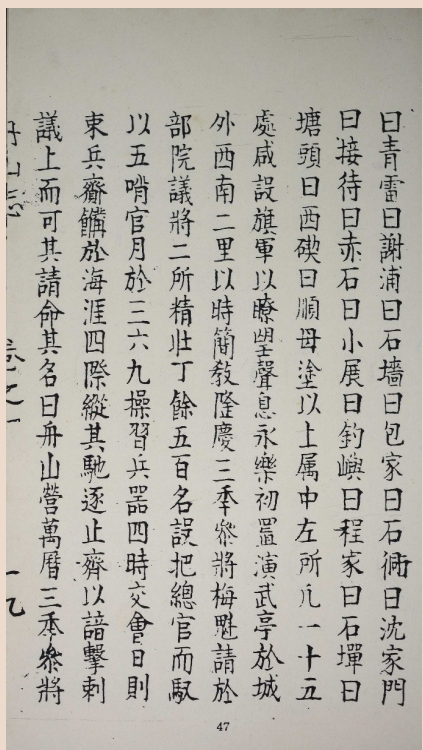 曰青雷曰謝浦曰石墻曰包家曰石衕曰沈家門
曰接待曰赤石曰小展曰釣嶼曰程家曰石墠曰
塘頭曰西碶曰順母塗以上属中左所凢一十五
處咸設旗軍以瞭望聲息永樂初置演武亭於城
外西南二里以時簡敎隆慶三秊叅將梅魁請於
部院議將二所精壯丁餘五百名設把總官而馭
以五哨官月於三六九操習兵器四時交會日則
束兵齎餶於海涯四際縱其馳逐止齊以諳擊刺
議上而可其請命其名曰舟山營萬曆三秊叅將
舟山志
卷之一
一九
47